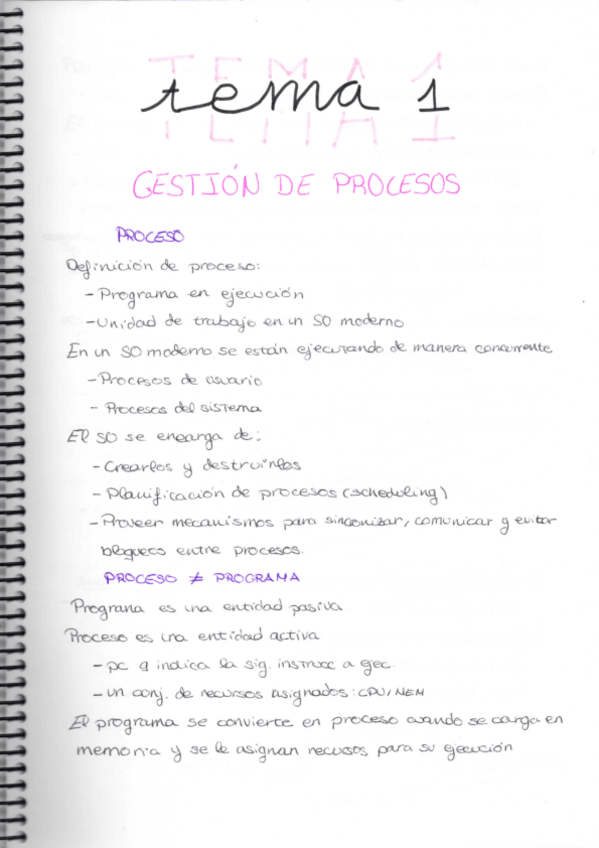 TEMA 1
tema 1
GESTIÓN DE PROCESOS
PROCESO
Definición de proceso:
- Programa en ejecución
- Unidad de trabajo en un SO moderno
En un SO moderno se están ejecutando de manera concurrente
- Procesos de usuario
- Procesos del sistema
El SO se encarga de:
- Crearlos y destruirlos
- Planificación de procesos (scheduling)
- Proveer mecanismos para sincronizar, comunicar y evitar
bloqueos entre procesos.
PROCESO ≠ PROGRAMA
Programa es una entidad pasiva
Proceso es una entidad activa
- pc q indica la sig. instrucc a ejec.
- un conj. de recursos asignados: CPU/MEM
El programa se convierte en proceso cuando se carga en
memoria y se le asignan recursos para su ejecución